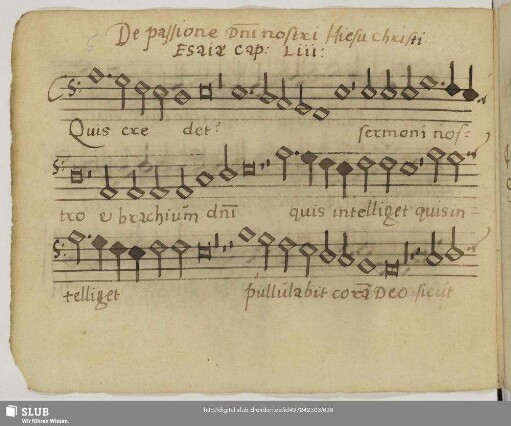 De passione Dñi nostri Hiesu Christi
Esaiæ Cap: LIII:
Quis cre det? sermoni nos=
tro & brachium dñi quis intelliget quis in=
telliget pullulabit corã Deo sicut
SLUB
Wir führen Wissen.